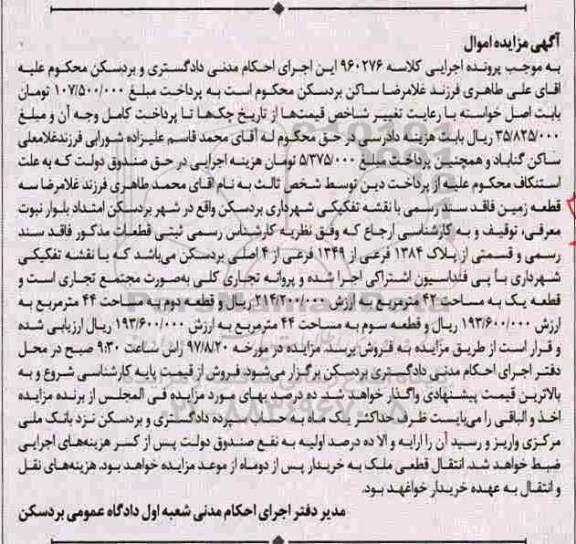 آگهی مزایده اموال
به موجب پرونده اجرایی کلاسه ۹۶۰۲۷۶ این اجرای احکام مدنی دادگستری و بردسکن محکوم علیه
اقای علی طاهری فرزند غلامرضا ساکن بردسکن محکوم است به پرداخت مبلغ ۱۰۷/۵۰۰/۰۰۰ تومان
بابت اصل خواسته با رعایت تغییر شاخص قیمت‌ها از تاریخ چک‌ها تا پرداخت کامل وجه آن و مبلغ
۳۵/۸۲۵/۰۰۰ ریال بابت هزینه دادرسی در حق محکوم له آقای محمد قاسم علیزاده شورابی فرزندغلامعلی
ساکن گناباد و همچنین پرداخت مبلغ ۵/۳۷۵/۰۰۰ تومان هزینه اجرایی در حق صندوق دولت که به علت
استنکاف محکوم علیه از پرداخت دین توسط شخص ثالث به نام اقای محمد طاهری فرزند غلامرضا سه
قطعه زمین فاقد سند رسمی با نقشه تفکیکی شهرداری بردسکن واقع در شهر بردسکن امتداد بلوار نبوت
معرفی، توقیف و به کارشناسی ارجاع که وفق نظریه کارشناس رسمی ثبتی قطعات مذکور فاقد سند
رسمی و قسمتی از پلاک ۱۳۸۴ فرعی از ۱۳۴۹ فرعی از ۴ اصلی بردسکن می‌باشد که با نقشه تفکیکی
شهرداری با پی فنداسیون اشتراکی اجرا شده و پروانه تجاری کلی به‌صورت مجتمع تجاری است و
قطعه یک به مساحت ۴۲ مترمربع به ارزش ۲۱۴/۲۰۰/۰۰۰ ریال و قطعه دوم به مساحت ۴۴ مترمربع به
ارزش ۱۹۳/۶۰۰/۰۰۰ ریال و قطعه سوم به مساحت ۴۴ مترمربع به ارزش ۱۹۳/۶۰۰/۰۰۰ ریال ارزیابی شده
و قرار است از طریق مزایده به فروش برسد. مزایده در مورخه ۹۷/۸/۲۰ راس ساعت ۹:۳۰ صبح در محل
دفتر اجرای احکام مدنی دادگستری بردسکن برگزار می‌شود. فروش از قیمت پایه کارشناسی شروع و به
بالاترین قیمت پیشنهادی واگذار خواهد شد. ده درصد بهای مورد مزایده فی المجلس از برنده مزایده
اخذ و الباقی را می‌بایست ظرف حداکثر یک ماه به حساب سپرده دادگستری و بردسکن نزد بانک ملی
مرکزی واریز و رسید آن را ارایه و الا ده درصد اولیه به نفع صندوق دولت پس از کسر هزینه‌های اجرایی
ضبط خواهد شد. انتقال قطعی ملک به خریدار پس از دوماه از موعد مزایده خواهد بود. هزینه‌های نقل
و انتقال به عهده خریدار خواغهد بود.
مدیر دفتر اجرای احکام مدنی شعبه اول دادگاه عمومی بردسکن